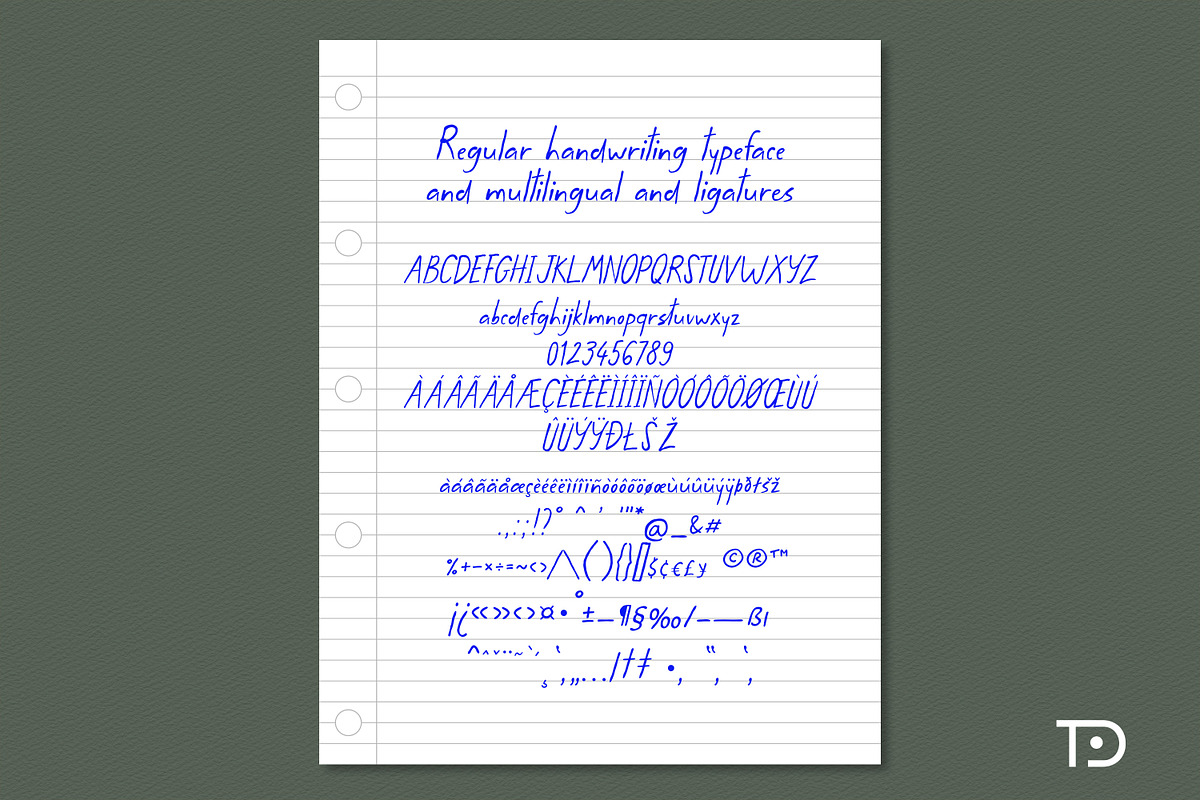 Regular handwriting typeface
and multilingual and ligatures
ABCDEFGHIJKLMNOPQRSTUVWXYZ
abcdefghijklmnopqrstuvwxyz
0123456789
ÀÁÂÃÄÅÆÇÈÉÊËÌÍÎÏÑÒÓÔÕÖØŒÙÚ
ÛÜÝŸÐŁŠŽ
àáâãäåæçèéêëìíîïñòóôõöøœùúûüýÿþðłšž
.,:;!?° ^ ’ '"* @_&#
%+-×÷=~<>/\(){}[]$¢€£¥ ©®™
¡¿«»‹›¤•°±_¶§‰/–—ßı
ˆ^ˇ¨˙˜`´ ‘
¸ ‚„…/†‡ •, “, ‘,
TD